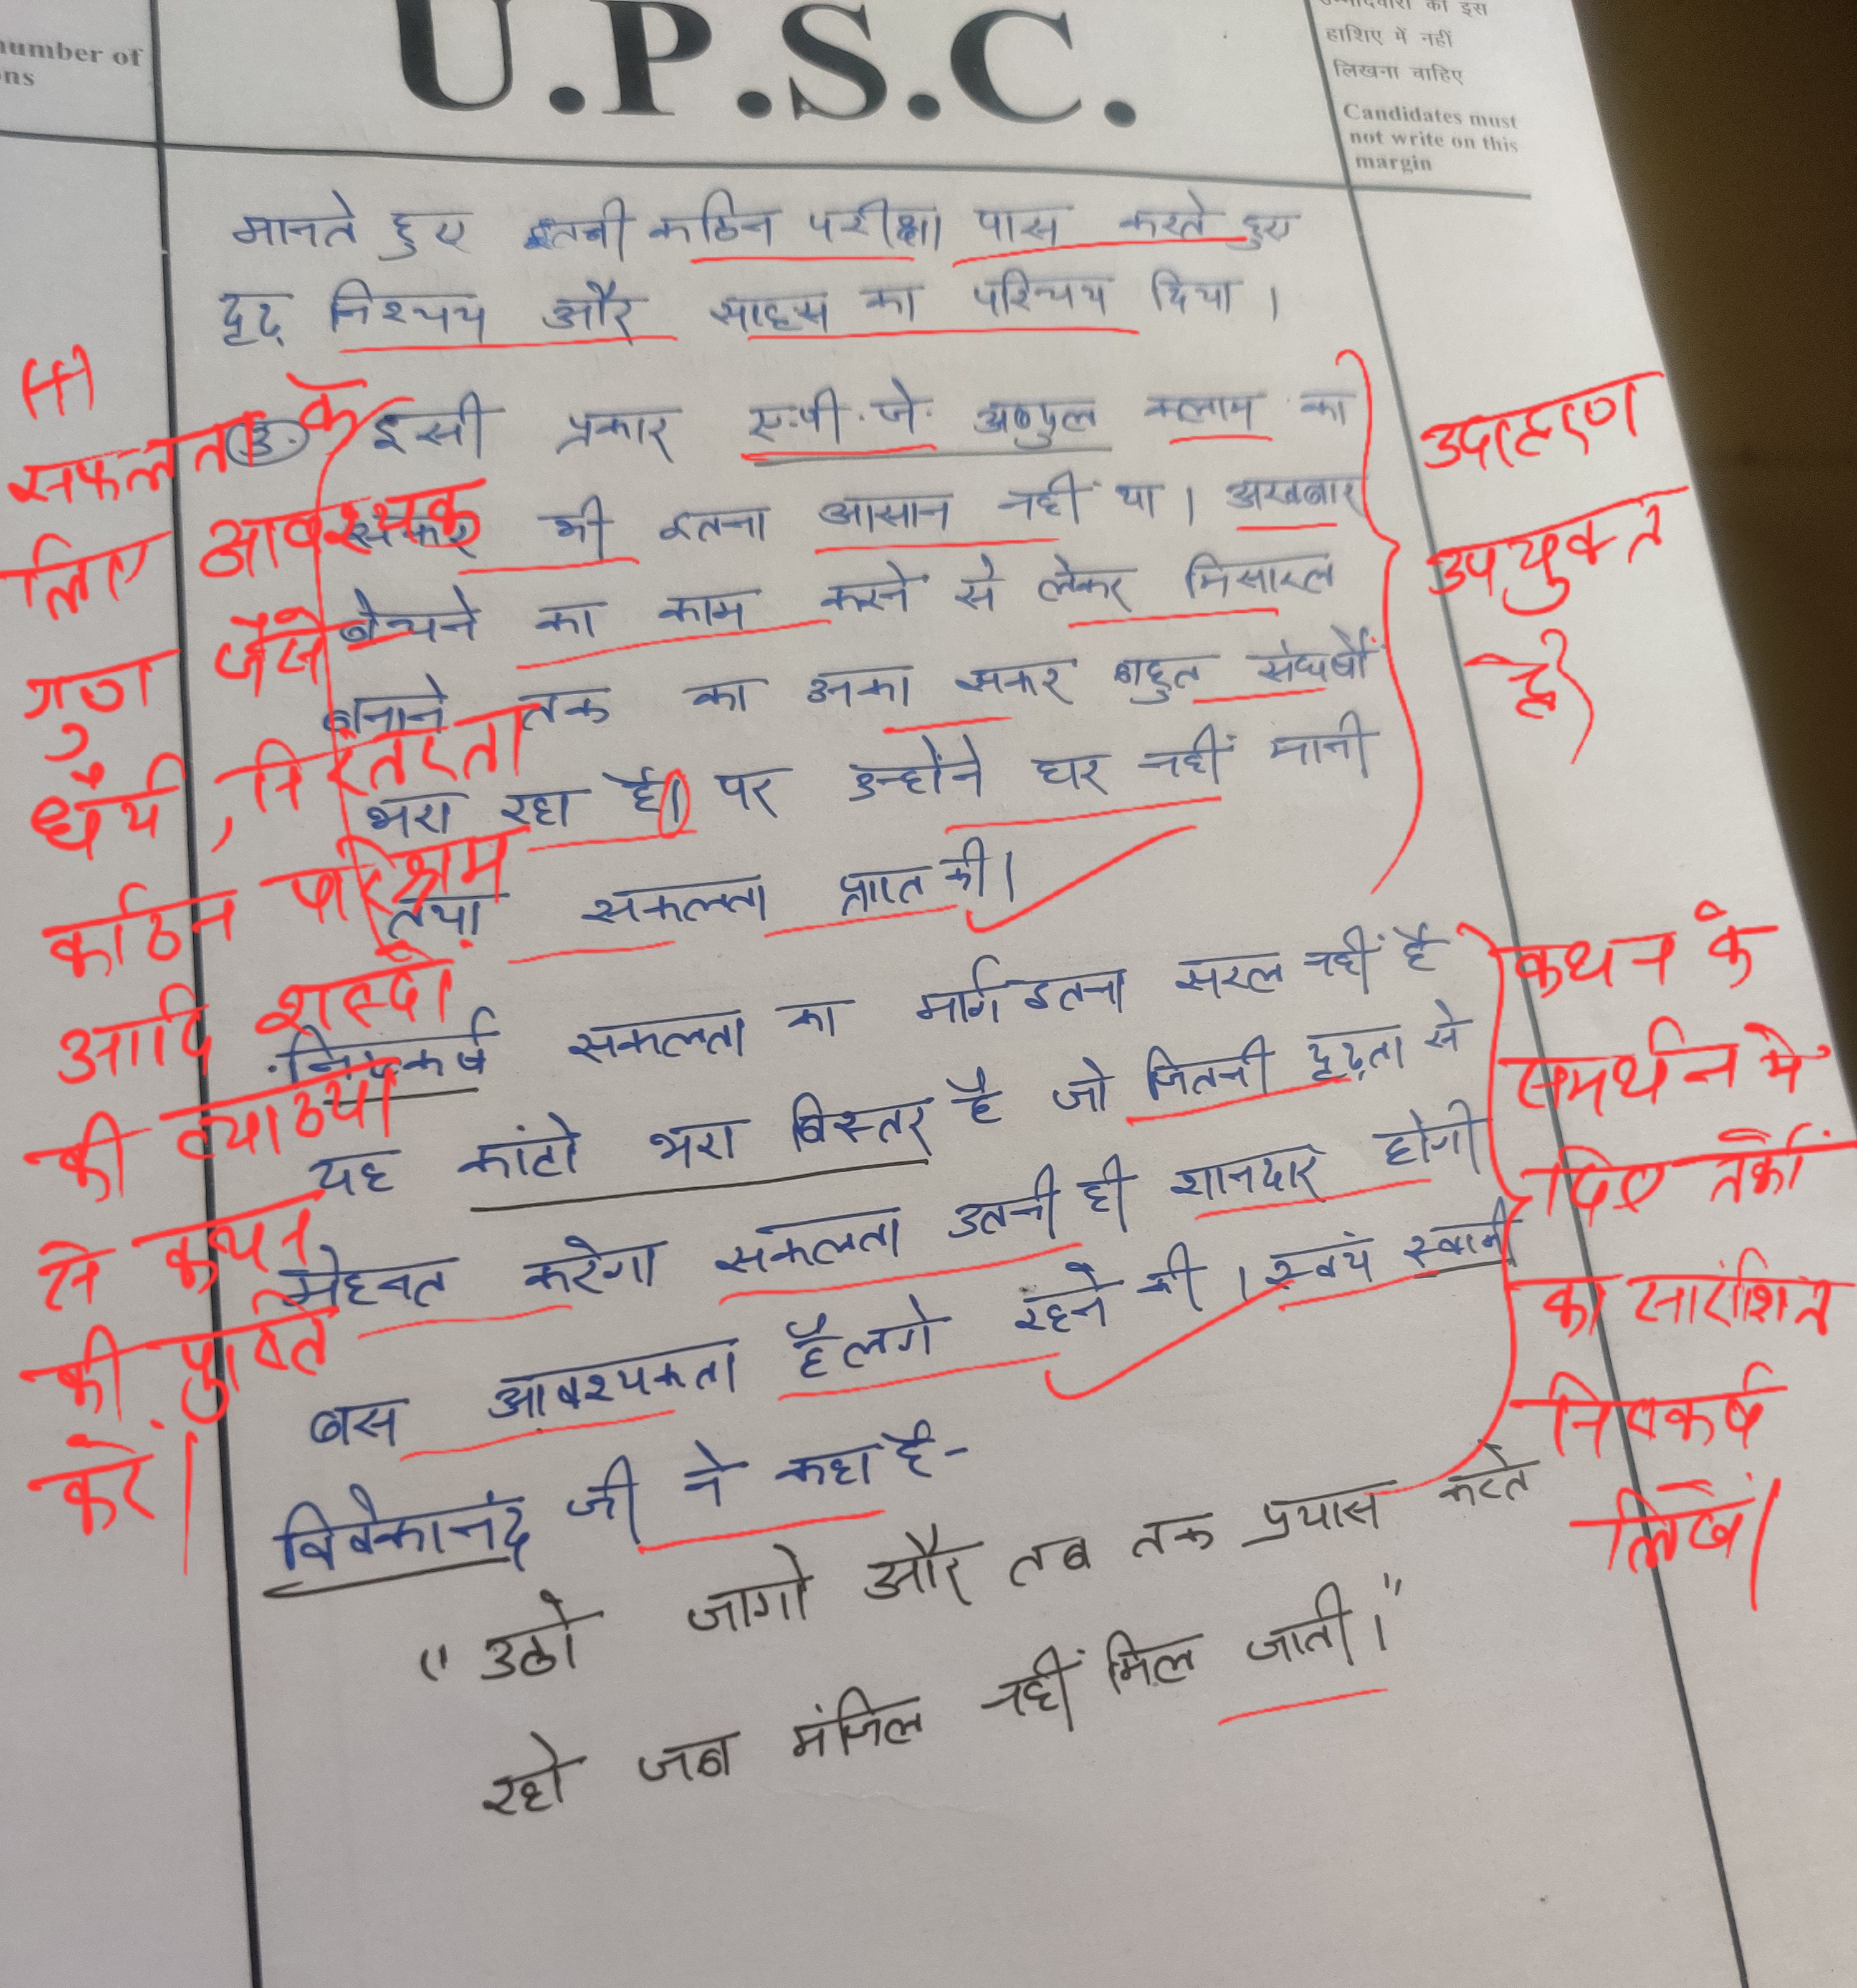 number of
ns
U.P.S.C.
उम्मीदवारों को इस
हाशिए में नहीं
लिखना चाहिए
Candidates must
not write on this
margin
मानते हुए इतनी कठिन परीक्षा पास करते हुए
दृढ़ निश्चय और साहस का परिचय दिया ।
3. इसी प्रकार ए.पी.जे. अब्दुल कलाम का
सफर भी इतना आसान नहीं था । अखबार
बेचने का काम करने से लेकर मिसाइल
बनाने तक का उनका सफर बहुत संघर्षों
भरा रहा है। पर उन्होंने हार नहीं मानी
तथा सफलता प्राप्त की।
निष्कर्ष सफलता का मार्ग इतना सरल नहीं है
यह कांटो भरा बिस्तर है जो जितनी दृढ़ता से
मेहनत करेगा सफलता उतनी ही शानदार होगी
बस आवश्यकता है लगे रहने की । स्वयं स्वामी
विवेकानंद जी ने कहा है-
“उठो जागो और तब तक प्रयास करते
रहो जब मंजिल नहीं मिल जाती।”
सफलता के
लिए आवश्यक
गुण जैसे
धैर्य, निरंतरता
कठिन परिश्रम
आदि शब्दों
की व्याख्या
से कथन
की पुष्टि
करें।
उदाहरण
उपयुक्त
है
कथन के
समर्थन में
दिए तर्कों
का सारांशित
निष्कर्ष
लिखें।